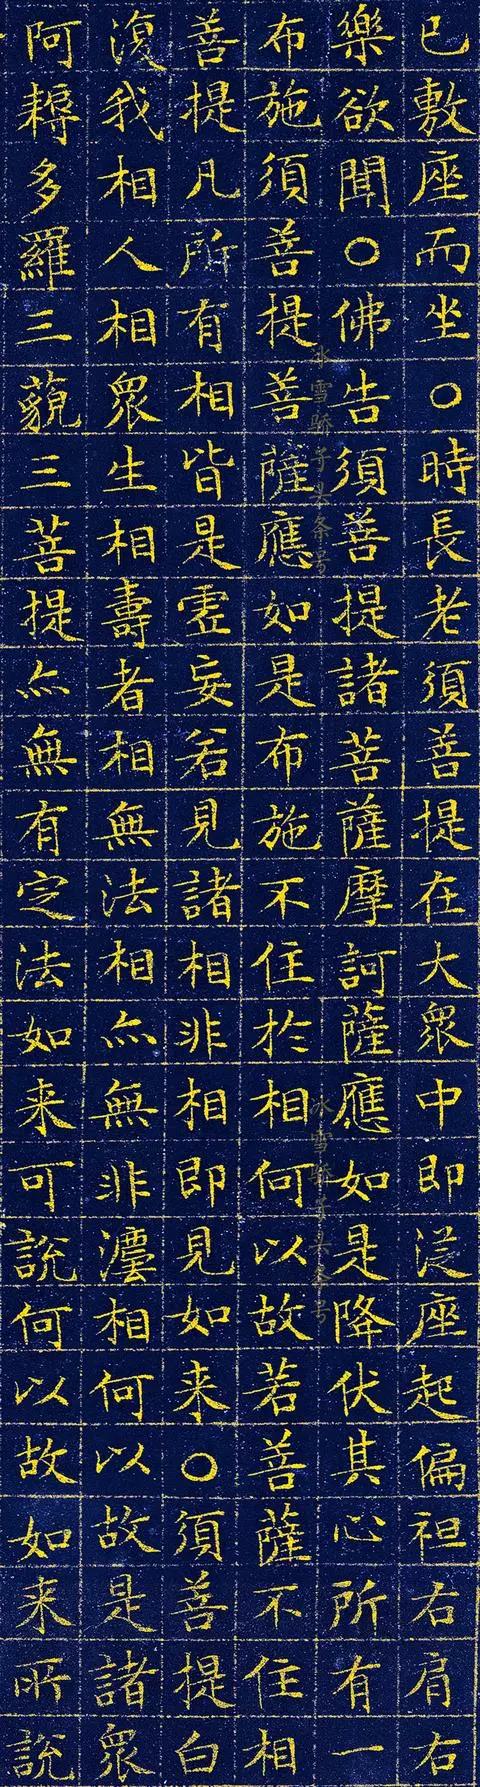 已敷座而坐○時長老須善提在大眾中即從座起偏袒右肩右
樂欲聞○佛告須善提諸菩薩摩訶薩應如是降伏其心所有一
布施須善提善薩應如是布施不住於相何以故若善薩不住相
善提凡所有相皆是虛妄若見諸相非相即見如来○須善提白
復我相人相眾生相壽者相無法相亦無非灋相何以故是諸眾
阿耨多羅三藐三菩提亦無有定法如来可說何以故如来所說